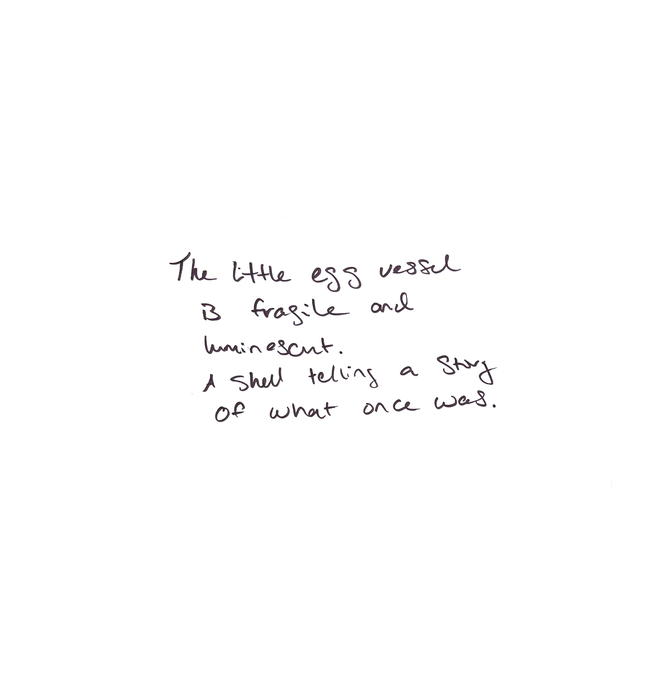 The little egg vessel
is fragile and
luminescent.
A shell telling a story
of what once was.